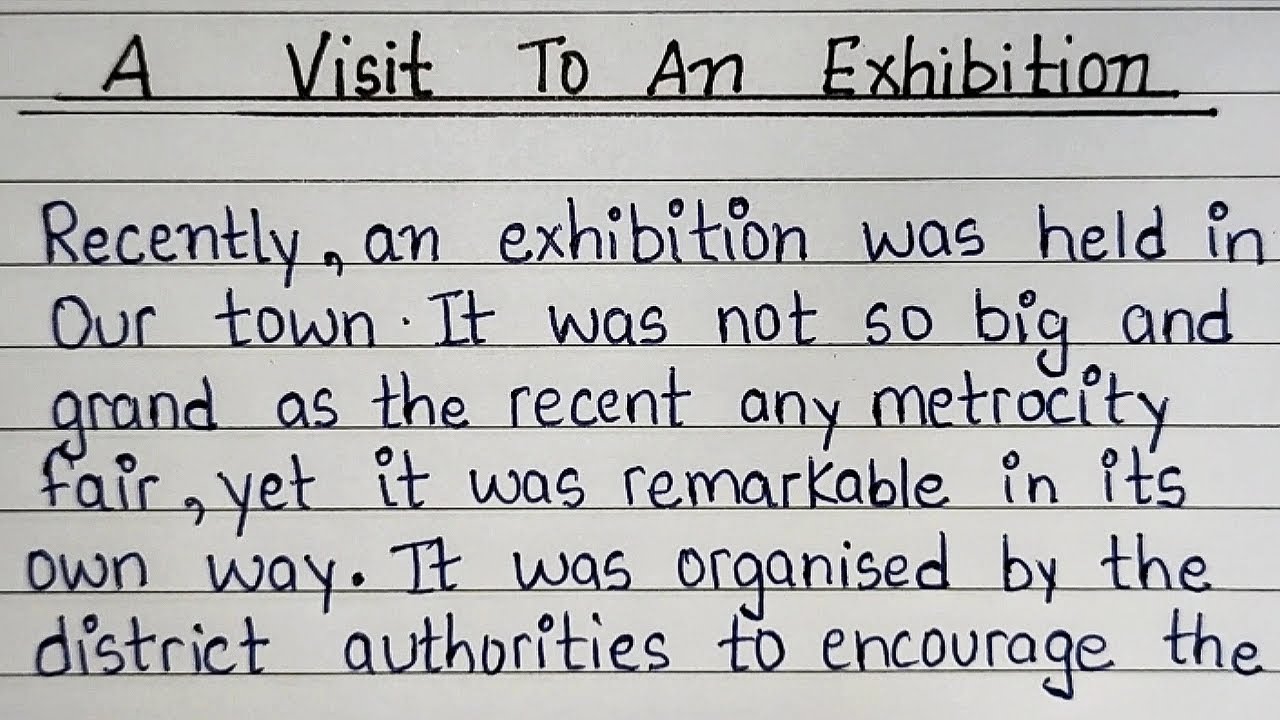 A Visit To An Exhibition
Recently, an exhibition was held in
Our town. It was not so big and
grand as the recent any metrocity
fair, yet it was remarkable in its
own way. It was organised by the
district authorities to encourage the